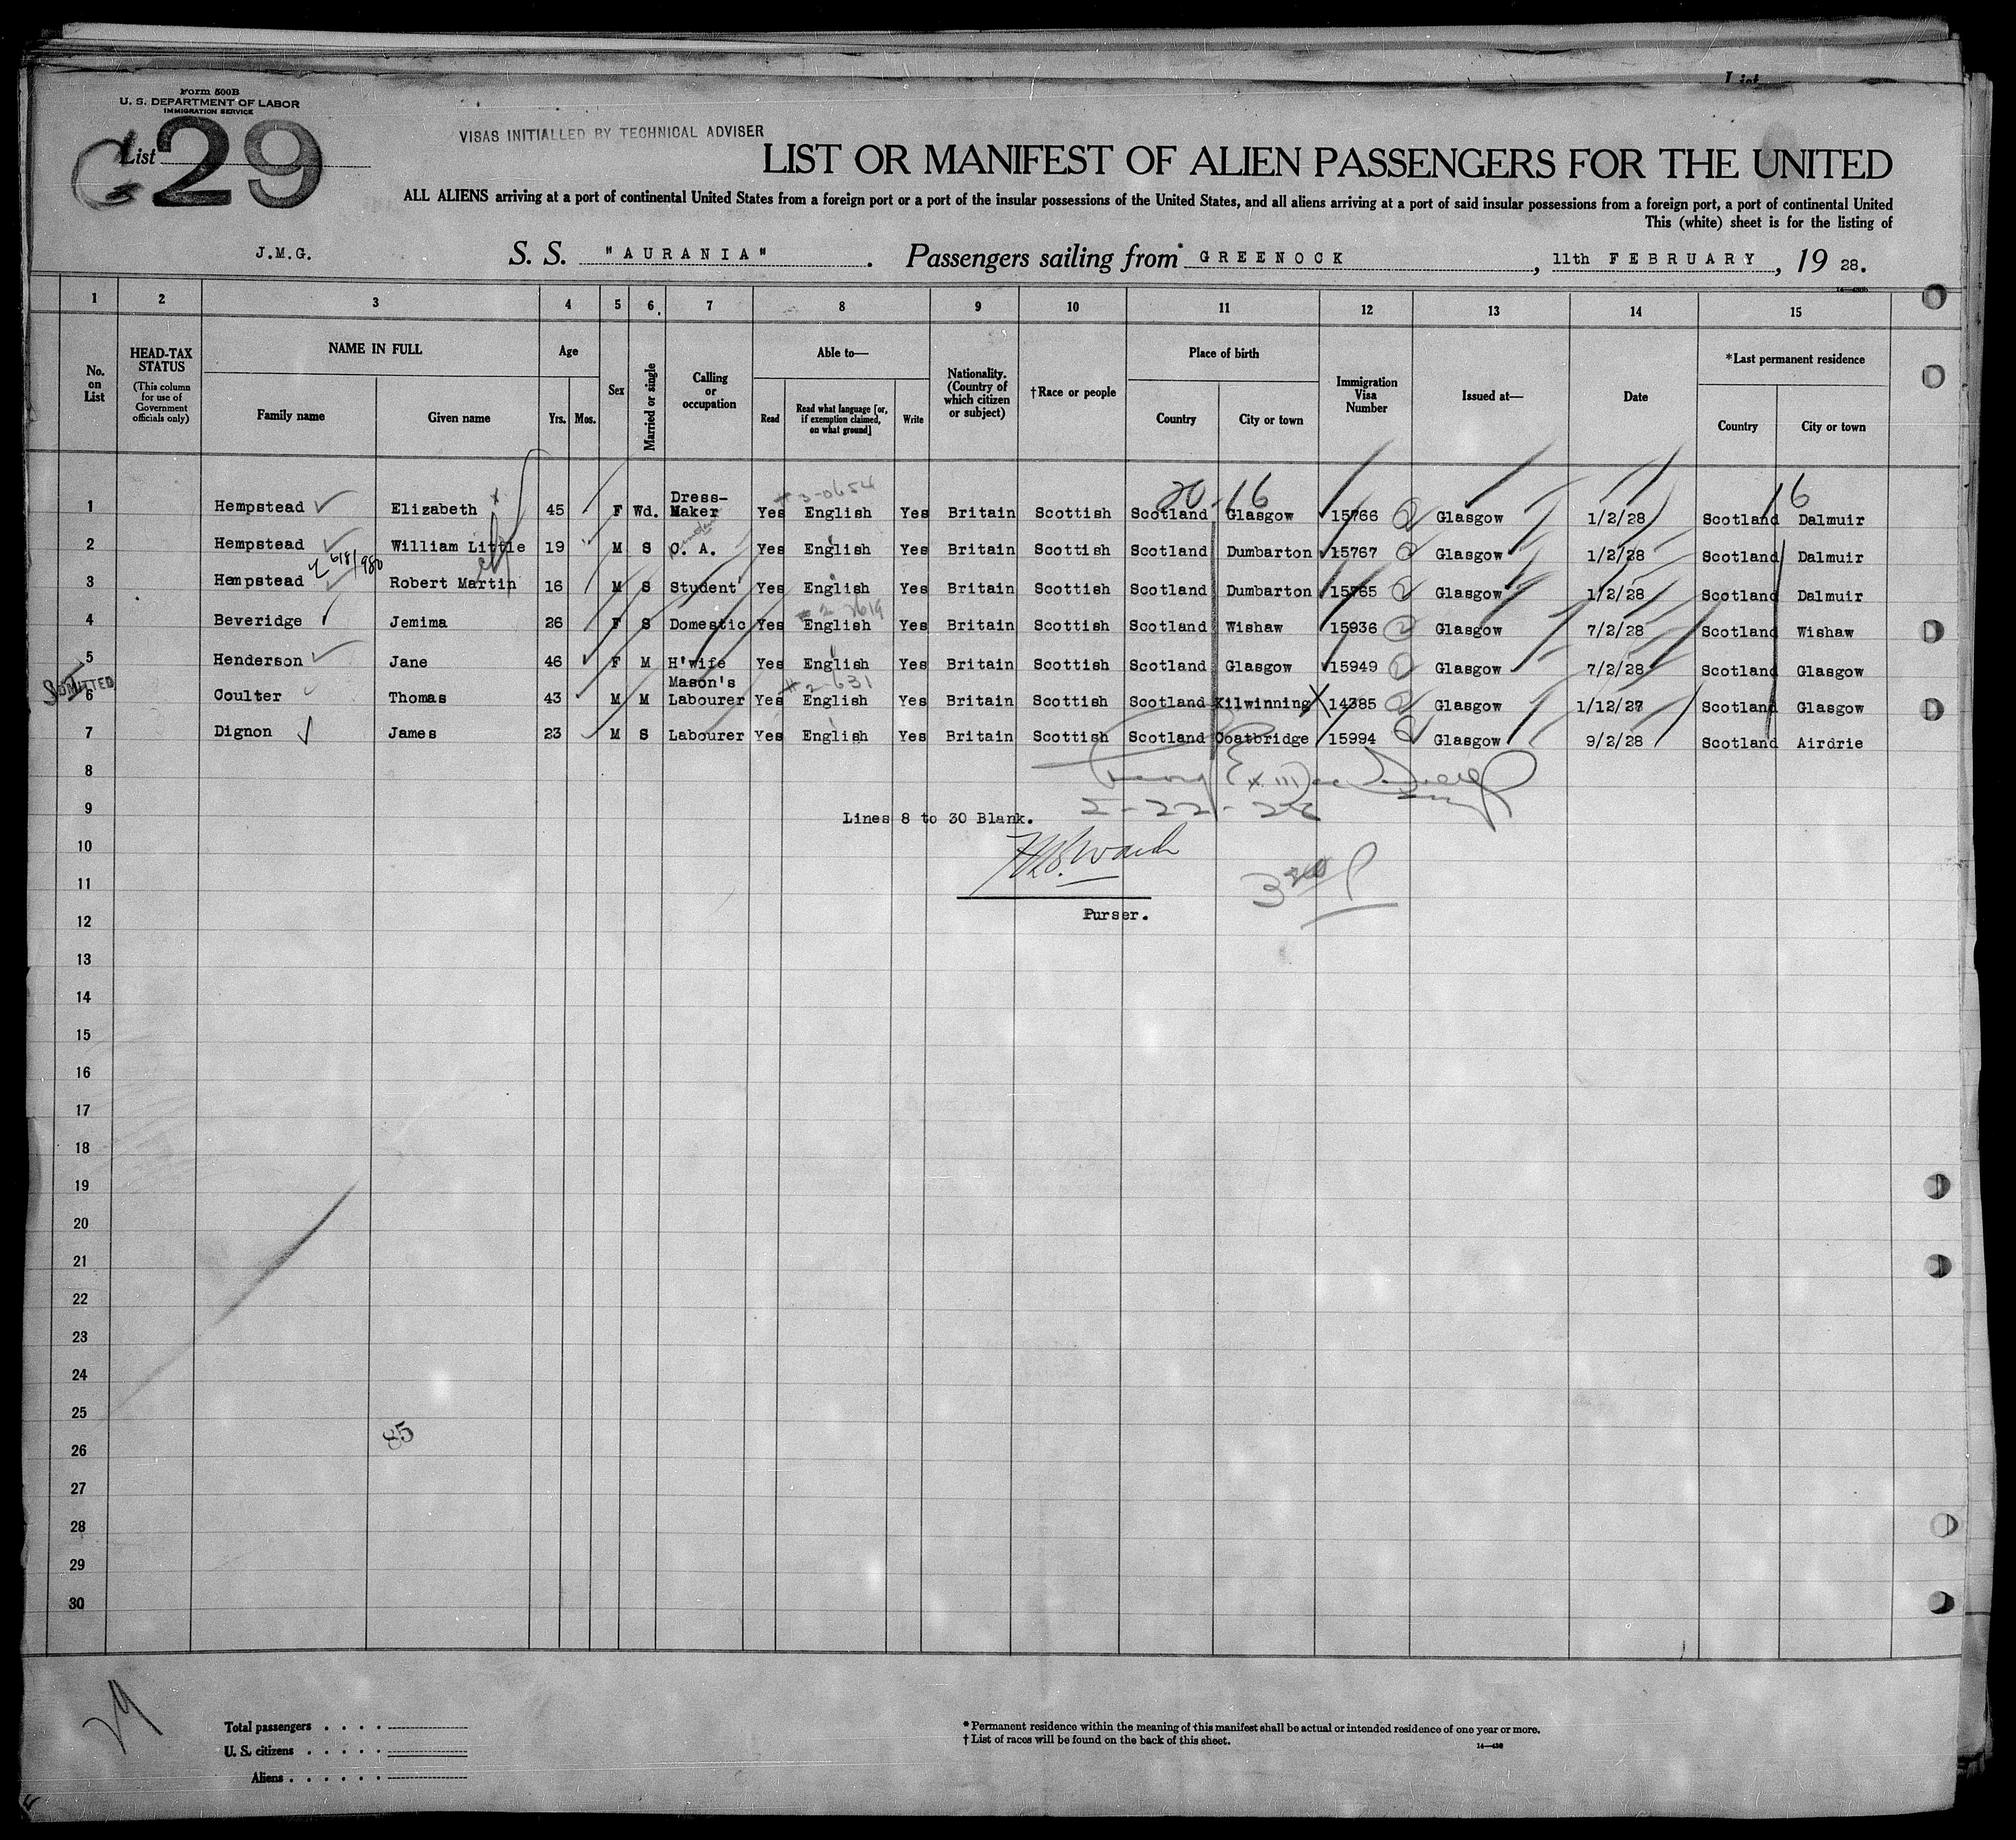 List
Form 500B
U. S. DEPARTMENT OF LABOR
IMMIGRATION SERVICE
List 29
VISAS INITIALLED BY TECHNICAL ADVISER
LIST OR MANIFEST OF ALIEN PASSENGERS FOR THE UNITED
ALL ALIENS arriving at a port of continental United States from a foreign port or a port of the insular possessions of the United States, and all aliens arriving at a port of said insular possessions from a foreign port, a port of continental United
This (white) sheet is for the listing of
J.M.G. S. S. "AURANIA". Passengers sailing from GREENOCK, 11th FEBRUARY, 19 28.
1 2 3 4 5 6. 7 8 9 10 11 12 13 14 15
No. on List
HEAD-TAX STATUS
(This column for use of Government officials only)
NAME IN FULL
Family name Given name
Age
Yrs. Mos.
Sex
Married or single
Calling or occupation
Able to—
Read
Read what language [or, if exemption claimed, on what ground]
Write
Nationality. (Country of which citizen or subject)
†Race or people
Place of birth
Country City or town
Immigration Visa Number
Issued at—
Date
*Last permanent residence
Country City or town
3-0654
20-16 16
1 Hempstead Elizabeth x 45 F Wd. Dress-Maker Yes English Yes Britain Scottish Scotland Glasgow 15766 2 Glasgow 1/2/28 Scotland Dalmuir
2 Hempstead William Little 19 M S O. A. Yes English Yes Britain Scottish Scotland Dumbarton 15767 2 Glasgow 1/2/28 Scotland Dalmuir
618/980
3 Hempstead Robert Martin 16 M S Student Yes English Yes Britain Scottish Scotland Dumbarton 15765 2 Glasgow 1/2/28 Scotland Dalmuir
# 2-2619
4 Beveridge Jemima 26 F S Domestic Yes English Yes Britain Scottish Scotland Wishaw 15936 2 Glasgow 7/2/28 Scotland Wishaw
5 Henderson Jane 46 F M H'wife Yes English Yes Britain Scottish Scotland Glasgow 15949 2 Glasgow 7/2/28 Scotland Glasgow
# 2-631
ADMITTED
6 Coulter Thomas 43 M M Mason's Labourer Yes English Yes Britain Scottish Scotland Kilwinning X 14385 2 Glasgow 1/12/27 Scotland Glasgow
7 Dignon James 23 M S Labourer Yes English Yes Britain Scottish Scotland Coatbridge 15994 2 Glasgow 9/2/28 Scotland Airdrie
8
2-22-28
9 Lines 8 to 30 Blank.
10
11
12 Purser.
13
14
15
16
17
18
19
20
21
22
23
24
25
85
26
27
28
29
30
29
Total passengers
U. S. citizens
Aliens
* Permanent residence within the meaning of this manifest shall be actual or intended residence of one year or more.
† List of races will be found on the back of this sheet.
14—430